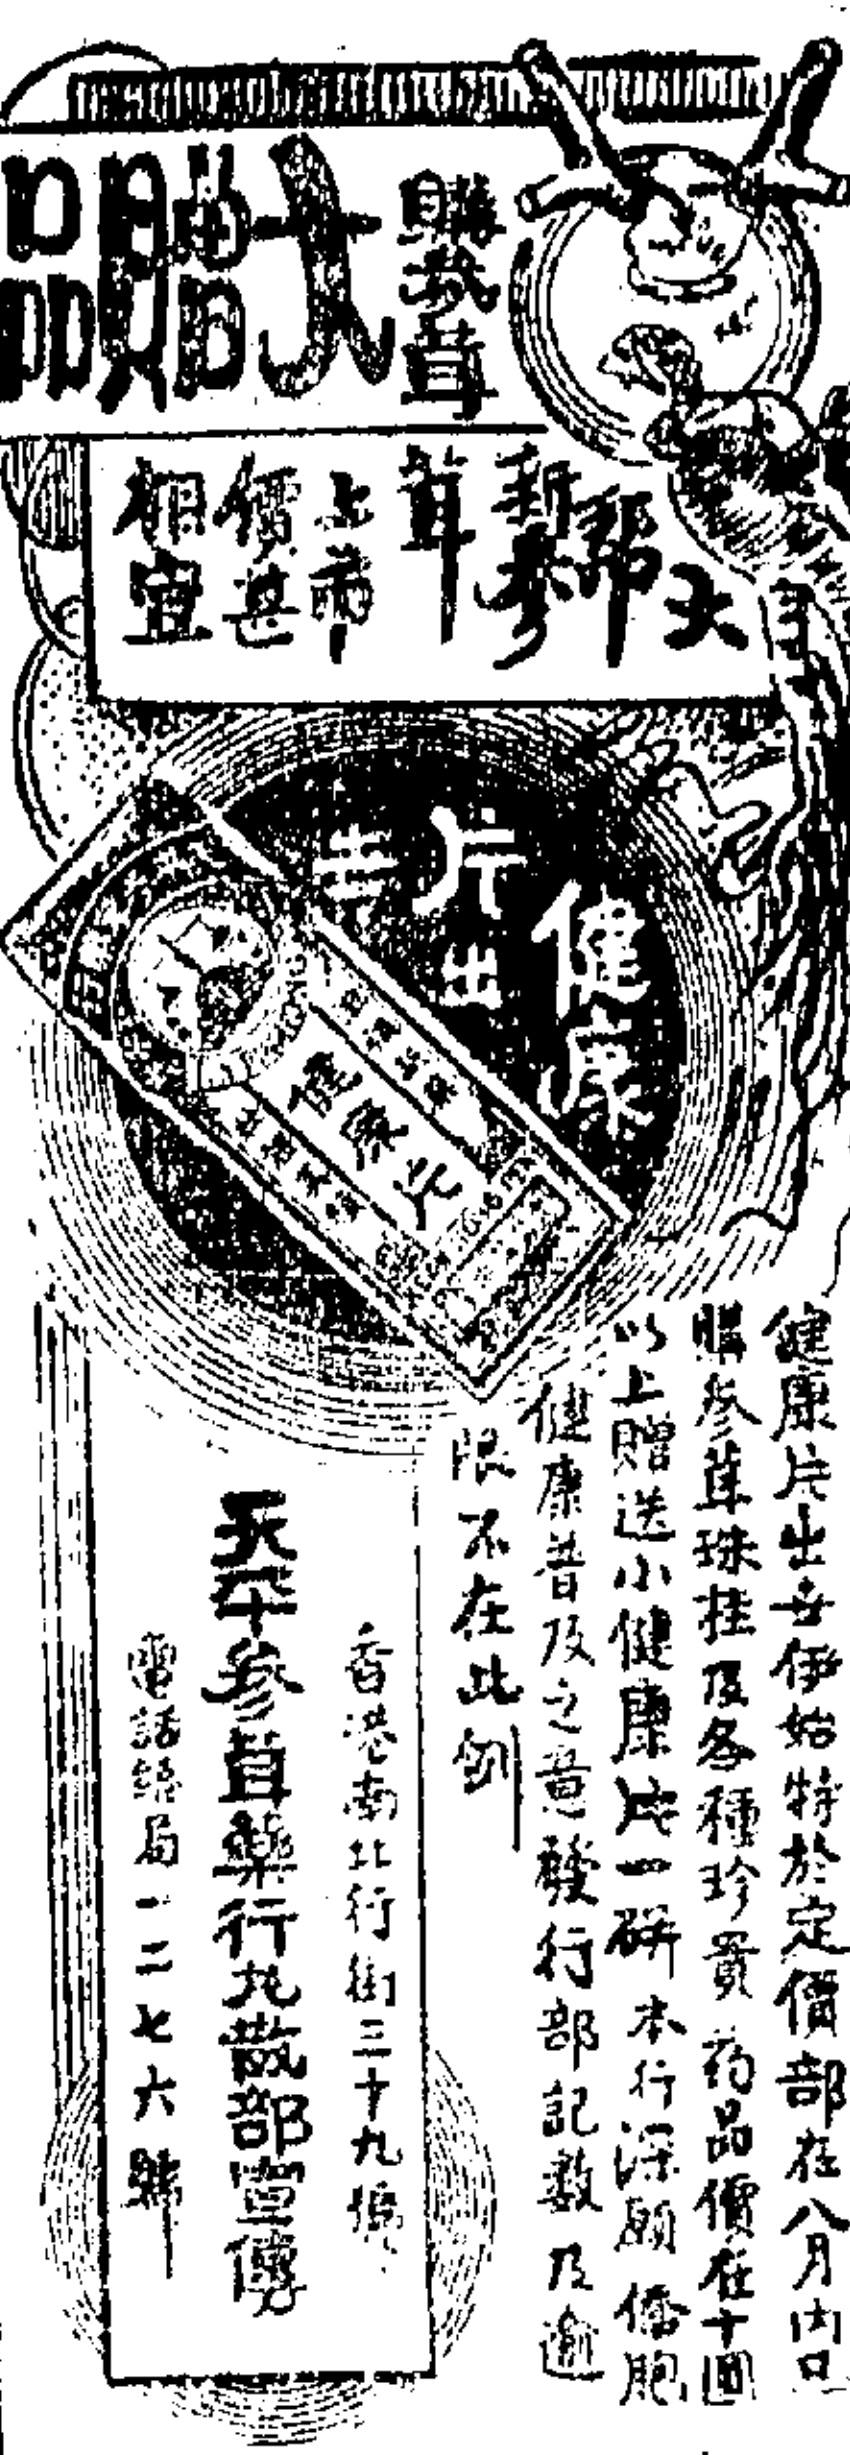 購參茸
大贈品
大幫
新參
茸
上市
價甚
相宜
健康
片出
世
健康片
健康片出世伊始特於定價部在八月內
購參茸珠桂及各種珍貴药品價在十圓
以上贈送小健康片一缾本行深願僑胞
健康普及之意發行部記數及逾
限不在此例
香港南北行街三十九號
天平參茸藥行丸散部宣傳
電話總局一二七六號